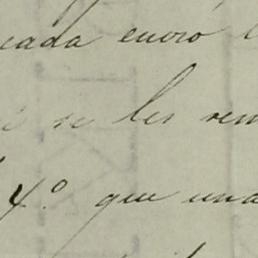 cada enero
se les
4º que una